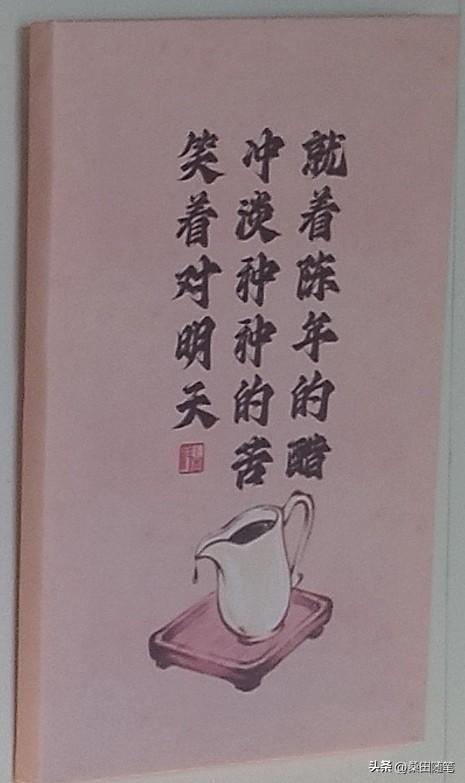 就着陈年的醋
冲淡种种的苦
笑着对明天
头条 @桑田随笔